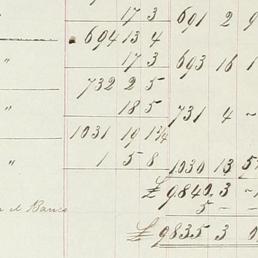 17 3 691 2 9
694 13 4
" 17 3 693 16 1
732 2 5
" 18 5 731 4 ~
1031 19 1¾
" 1 5 8 1030 13 5
£ 9840 3 ~
5 ~
£ 9835 3